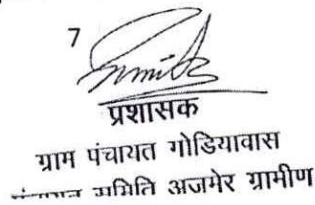 7
प्रशासक
ग्राम पंचायत गोडियावास
समिति अजमेर ग्रामीण